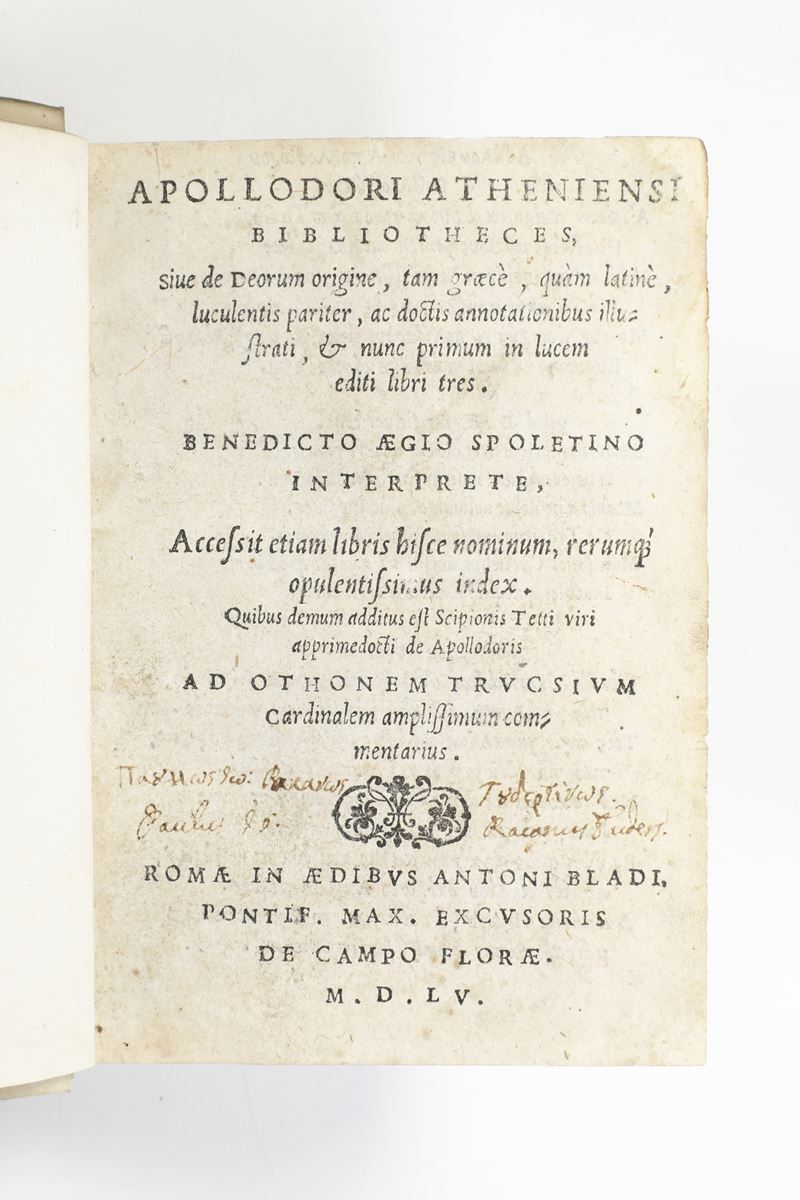 APOLLODORI ATHENIENSI
BIBLIOTHECES,
siue de Deorum origine, tam græcè, quàm latinè,
luculentis pariter, ac doctis annotationibus illu⸗
strati, & nunc primum in lucem
editi libri tres.
BENEDICTO ÆGIO SPOLETINO
INTERPRETE,
Accessit etiam libris hisce nominum, rerumq́
opulentissimus index.
Quibus demum additus est Scipionis Tetti viri
apprimedocti de Apollodoris
AD OTHONEM TRVCSIVM
Cardinalem amplissimum com⸗
mentarius.
Paulus
ROMÆ IN ÆDIBVS ANTONI BLADI,
PONTIF. MAX. EXCVSORIS
DE CAMPO FLORÆ.
M.D.LV.